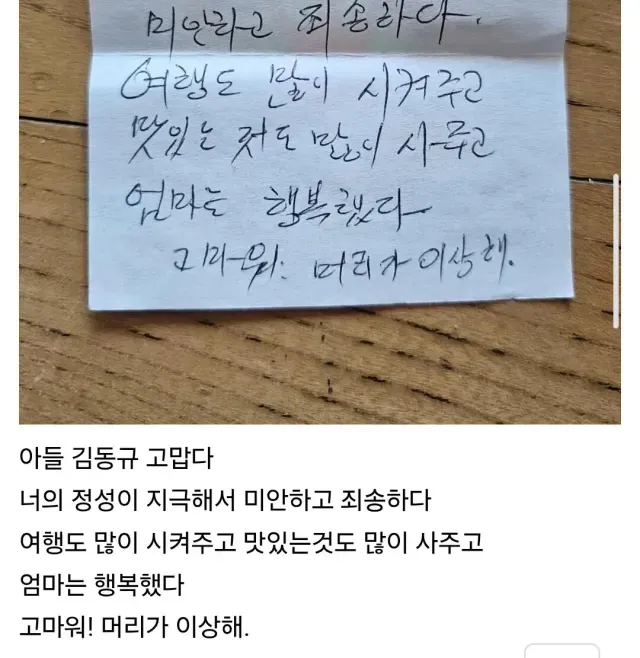 미안라고 죄송라다.
여행도 많이 시켜주고
맛있는 것도 많이 사주고
엄마는 행복했다
고마워! 머리가 이상해.
아들 김동규 고맙다
너의 정성이 지극해서 미안하고 죄송하다
여행도 많이 시켜주고 맛있는것도 많이 사주고
엄마는 행복했다
고마워! 머리가 이상해.